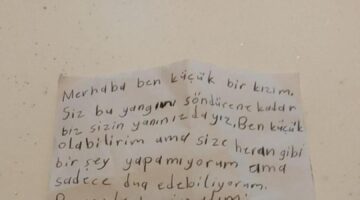 Merhaba ben küçük bir kızım.
Siz bu yangını söndürene kadar
biz sizin yanınızdayız. Ben küçük
olabilirim ama size herangibi
bir şey yapamıyorum ama
sadece dua edebiliyorum.